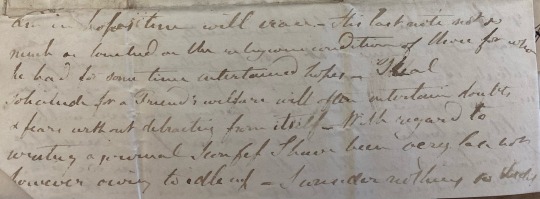 am in hopes time will wear – His last note not so
much as touched on the religious condition of those for whom
he had for some time entertained hopes – Real
solicitude for a Friend's welfare will often entertain doubts
& fears without detracting from itself – With regard to
writing a journal I confess I have been very lax not
however owing to idleness – I consider nothing so